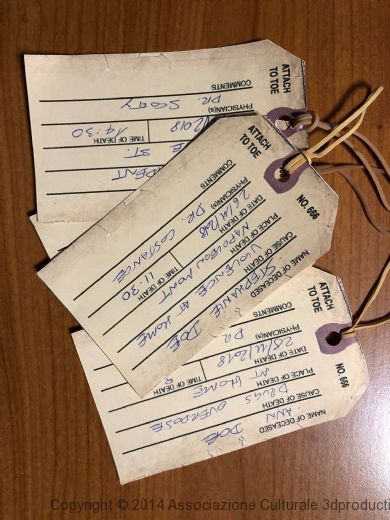 ATTACH
TO TOE
COMMENTS
PHYSICIAN(S) DR. SCOTTY
2018 TIME OF DEATH 14:30
E ST.
DENT
ATTACH
TO TOE
NO. 666
NAME OF DECEASED STEPHANIE DOE
CAUSE OF DEATH VIOLENCE AT HOME
PLACE OF DEATH NAPOLEON MONT
DATE OF DEATH 26/11/2018 TIME OF DEATH 11:30
PHYSICIAN(S) DR. COSTANCE
COMMENTS
ATTACH
TO TOE
NO. 666
NAME OF DECEASED ANN DOE
CAUSE OF DEATH DRUGS OVERDOSE
PLACE OF DEATH AT HOME
DATE OF DEATH 28/11/2018 TIME OF DE
PHYSICIAN(S) DR.
COMMENTS
Copyright © 2014 Associazione Culturale 3dproducti